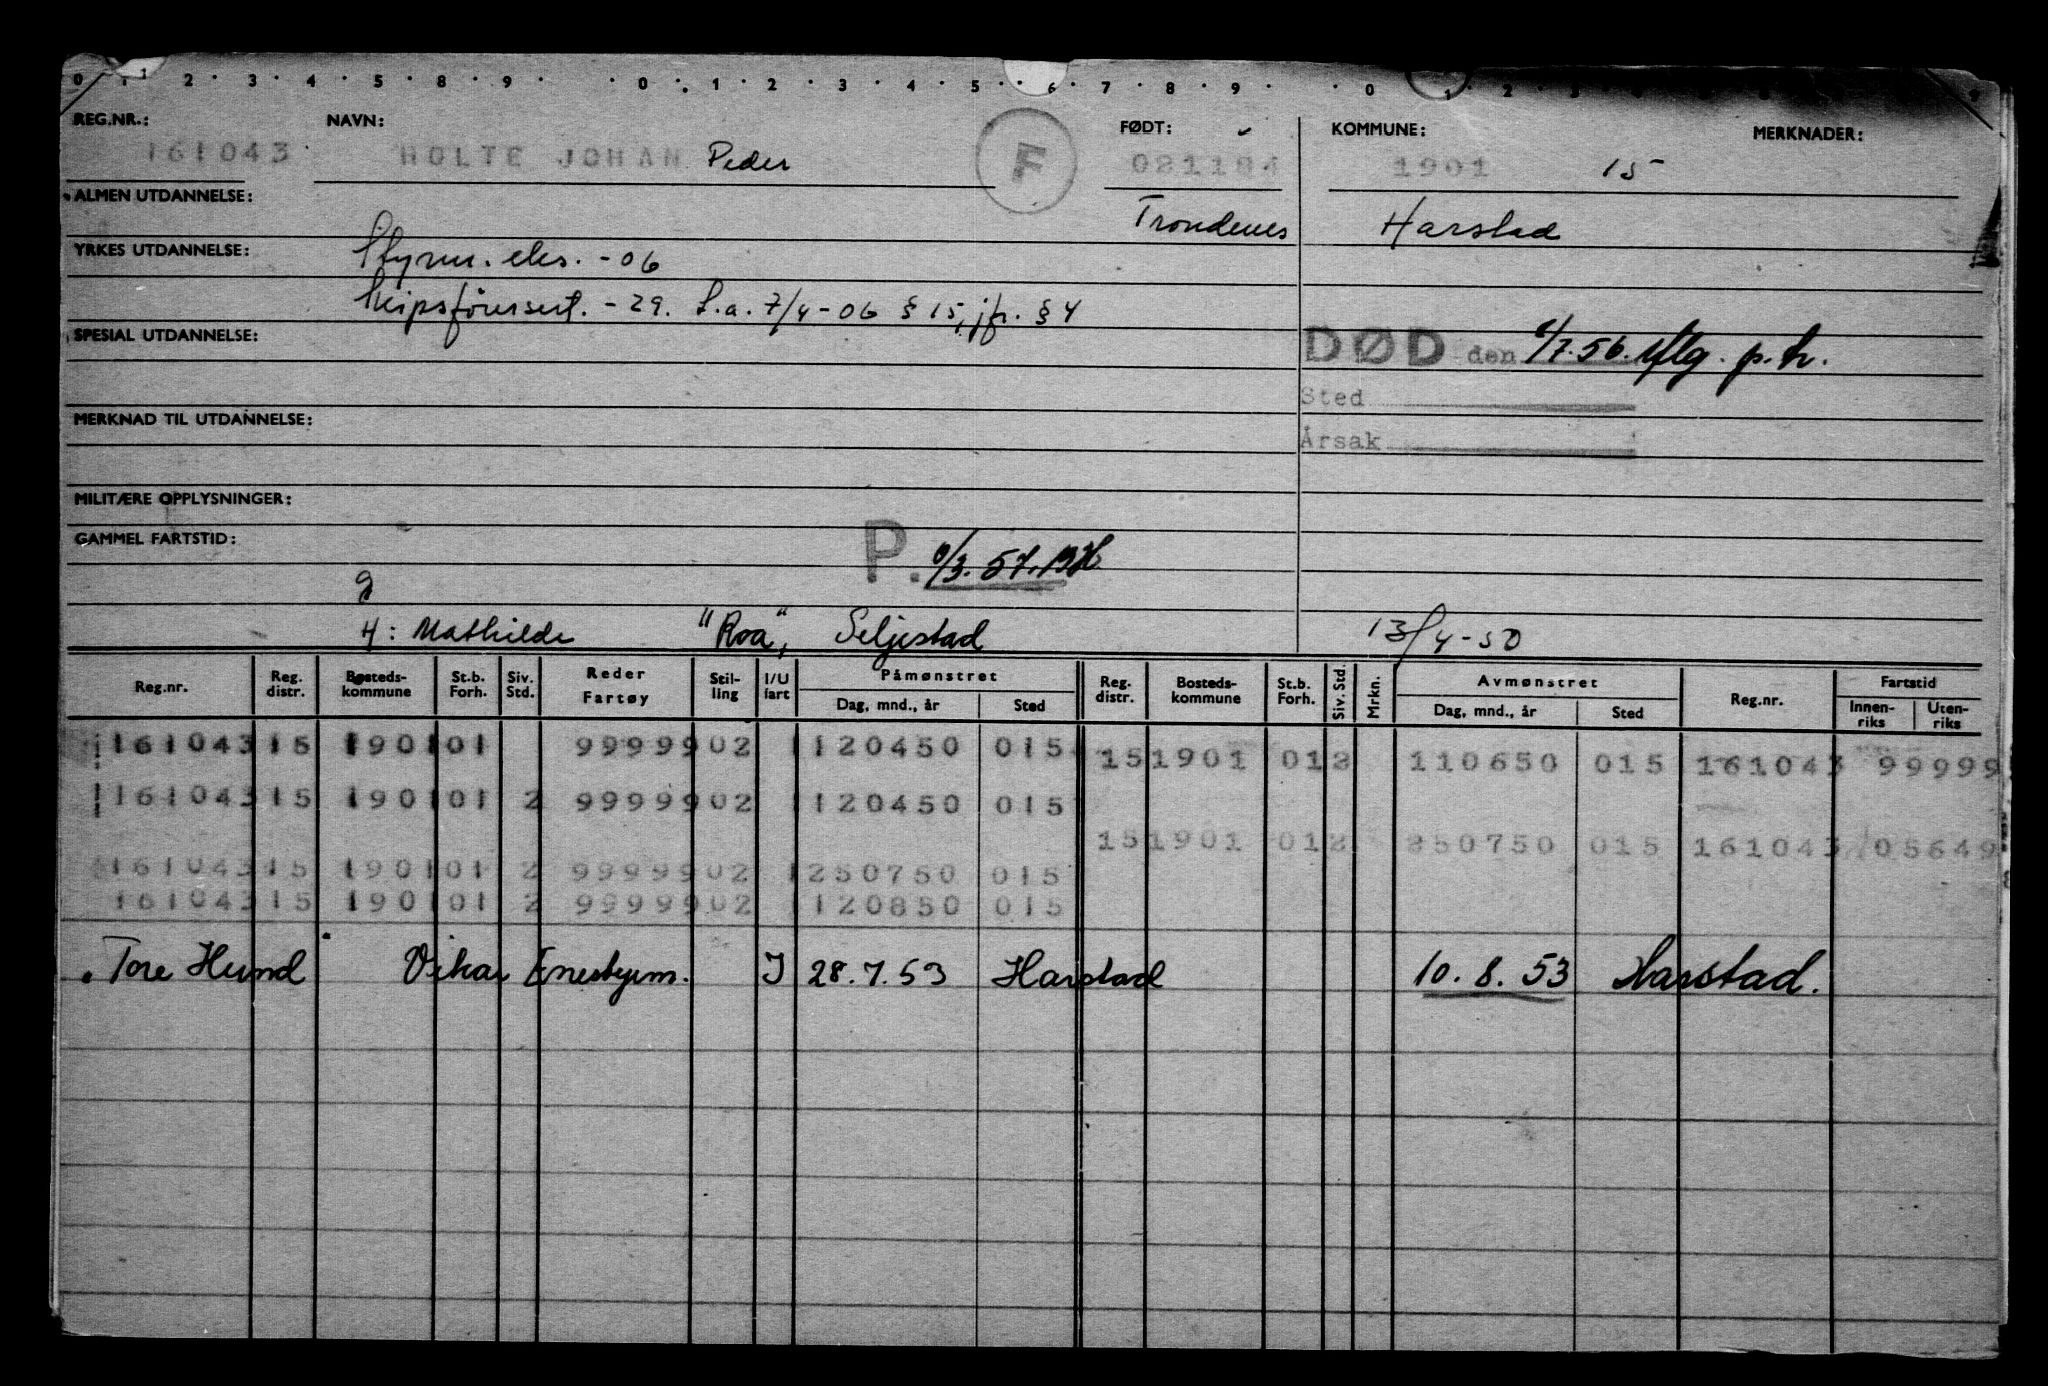 0 · 1 · 2 · 3 · 4 · 5 · 8 · 9 · · 0 · 1 · 2 · 3 · 4 · 5 · 6 · 7 · 8 · 9 · · 0 · 1 · 2 · 3
REG.NR.: NAVN: FØDT: KOMMUNE: MERKNADER:
161043 HOLTE JOHAN Peder F 081184 1901 15
ALMEN UTDANNELSE: Trondenes Harstad
YRKES UTDANNELSE: Styrm. eks. - 06
Skipsførersert. - 29. S.a. 7/4 - 06 § 15, jfr. § 4
SPESIAL UTDANNELSE:
DØD den 6/7.56. iflg. p.k.
Sted
MERKNAD TIL UTDANNELSE:
Årsak
MILITÆRE OPPLYSNINGER:
GAMMEL FARTSTID: P. 57.
g
H: Mathilde "Roa", Seljestad 13/4-50
Reg.nr. Reg. distr. Bosteds-kommune St.b. Forh. Siv. Std. Reder Fartøy Stil-ling I/U fart Påmønstret Dag, mnd., år Sted Reg. distr. Bosteds-kommune St.b. Forh. Siv. Std. Mrkn. Avmønstret Dag, mnd., år Sted Reg.nr. Fartstid Innen-riks Uten-riks
161043 15 1901 01 99999 02 1 120450 015 15 1901 01 2 110650 015 161043 99999
161043 15 1901 01 2 99999 02 1 120450 015
15 1901 01 2 250750 015 161043 05649
161043 15 1901 01 2 99999 02 1 250750 015
161043 15 1901 01 2 99999 02 1 120850 015
Tore Hund Vikar Enestyrm. I 28.7.53 Harstad 10.8.53 Harstad.